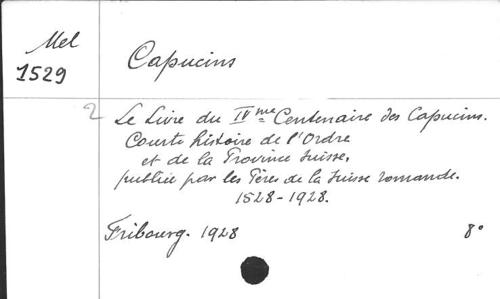 Mel
1529
Capucins
2
Le Livre du IVme Centenaire des Capucins.
Courte histoire de l'Ordre
et de la Province suisse,
publiée par les Pères de la Suisse romande.
1528-1928.
Fribourg. 1928
8°